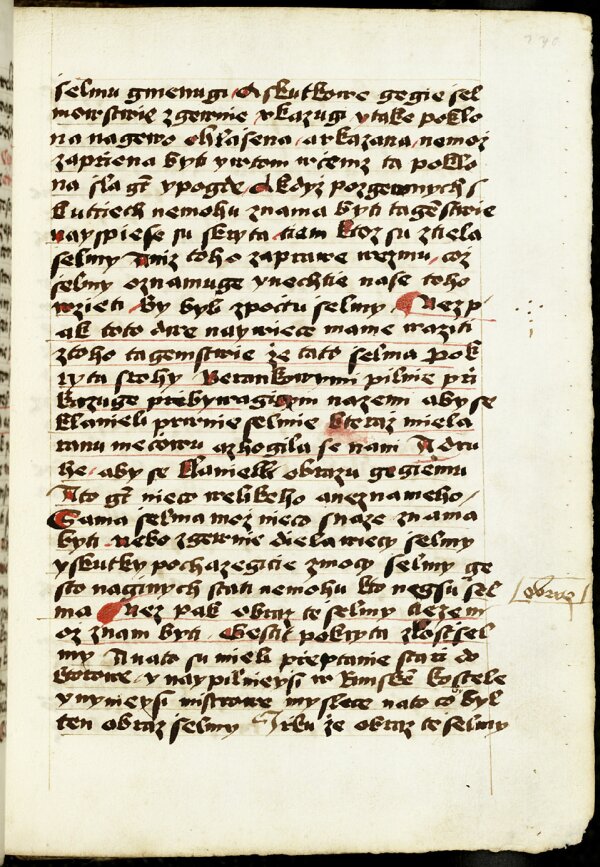 selmu gmenugi A skutkowe gegie sel
mowstwie zgewnie vkazugi ytake poklo
na nagewo ohlasena arkazana nemoz
zaprzena byti ywtom wcemz ta poklo
na sla gt ypogde A kdyz pozgewnych s
kutciech nemohu znama byti tagemstwie
nayspiese su skryta tiem ktoz su ztiela
selmy Aniz toho zaprawe wezmu coz
selmy oznamuge ynechtie nase toho
wzieti By byli zpoctu selmy Nez p
ak toto dwe naywiece mame waziti
ztoho tagemstwie ze tato selma pok
ryta rohy Berankowymi pilnie pri
kazuge przebywagicym nazemi aby se
klanieli prwnie selmie kteraz miela
ranu mecowu azhogila se nam A dru
he aby se klanieli obrazu gegiemu
A to gt nieco welikeho aneznameho
Sama selma moz nieco snaze znama
byti nebo zgewnie diela wiecy selmy
yskutky pochazegicie zmocy selmy ge
sto naginych stati nemohu kto negsu sel
ma Nez pak obraz te selmy tiezem
oz znam byti Gestit pokryta zlost sel
my A nato su mieli przeptanie starzi do
ktorowe y naypilneysi w Rimske kostele
ynynieysi mistrowe myslece nato co by byl
ten obraz selmy Jirku ze obraz te selmy
obraz